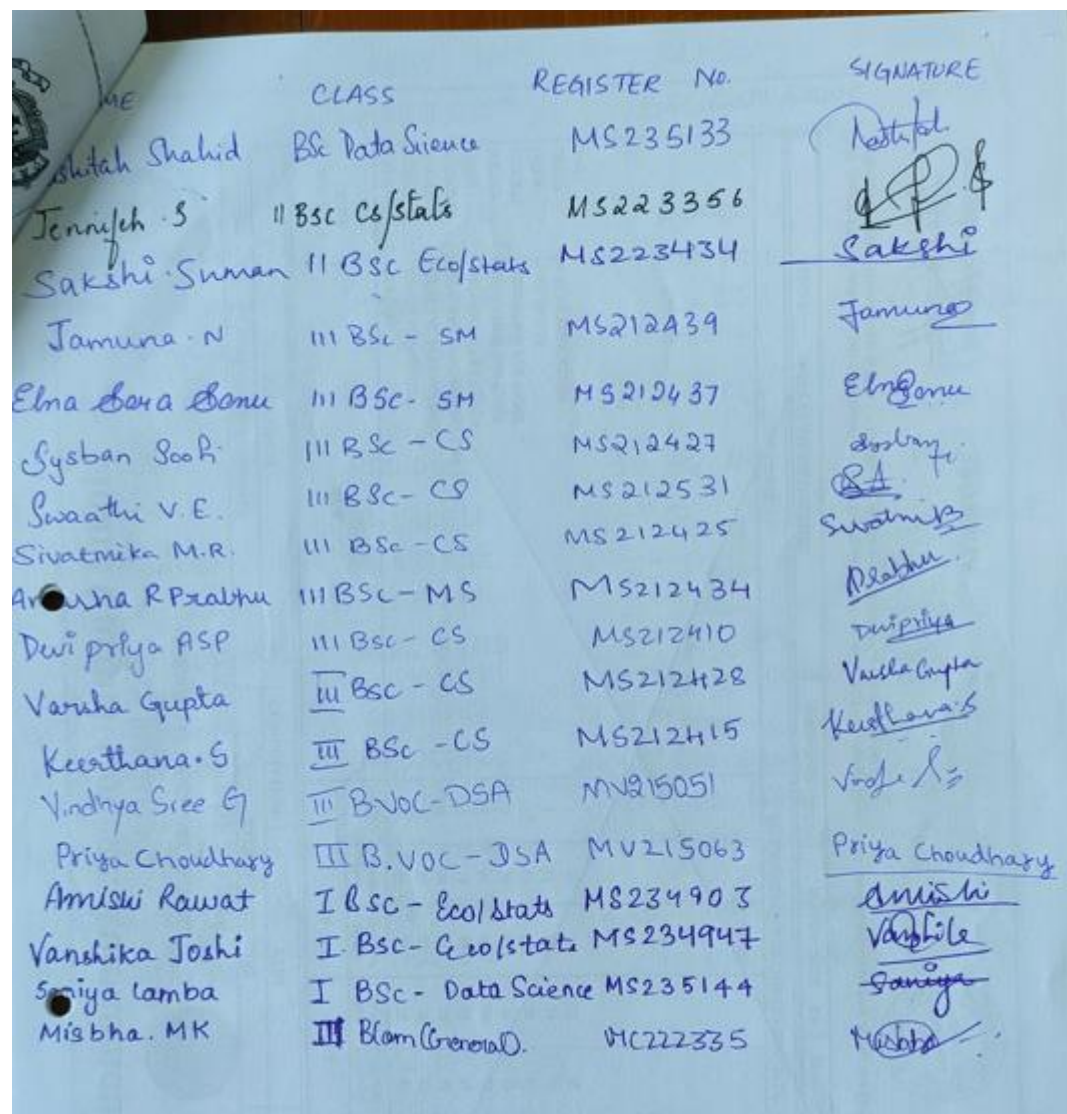 CLASS REGISTER No. SIGNATURE
Shahid BSc Data Science MS235133
Jennifeh . S II BSC CS/Stats MS223356
Sakshi Suman II BSC Eco/Stats MS223434 Sakshi
Jamuna . N III BSc - SM MS212439 Jamuna
Elna Sara Sonu III BSc - SM MS212437 Elna Sonu
Sysban III BSc - CS MS212427
Swaathi V.E. III BSc - CS MS212531
Sivatmika M.R. III BSc - CS MS212425
R Prabhu III BSc - MS MS212434 Prabhu
Dwi priya ASP III BSc - CS MS212410 Dwipriya
Varsha Gupta III BSC - CS MS212428 Varsha Gupta
Keerthana. S III BSc - CS MS212415 Keerthana.S
Vindhya Sree G III B.VOC-DSA MV215051
Priya Choudhary III B.VOC - DSA MV215063 Priya Choudhary
Amishi Rawat I BSC - Eco/Stats MS234903 Amishi
Vanshika Joshi I. BSC - Eco/Stats MS234947
Saniya Lamba I BSC - Data Science MS235144 Saniya
Misbha. MK III BCom (General). MC222335 Misbha